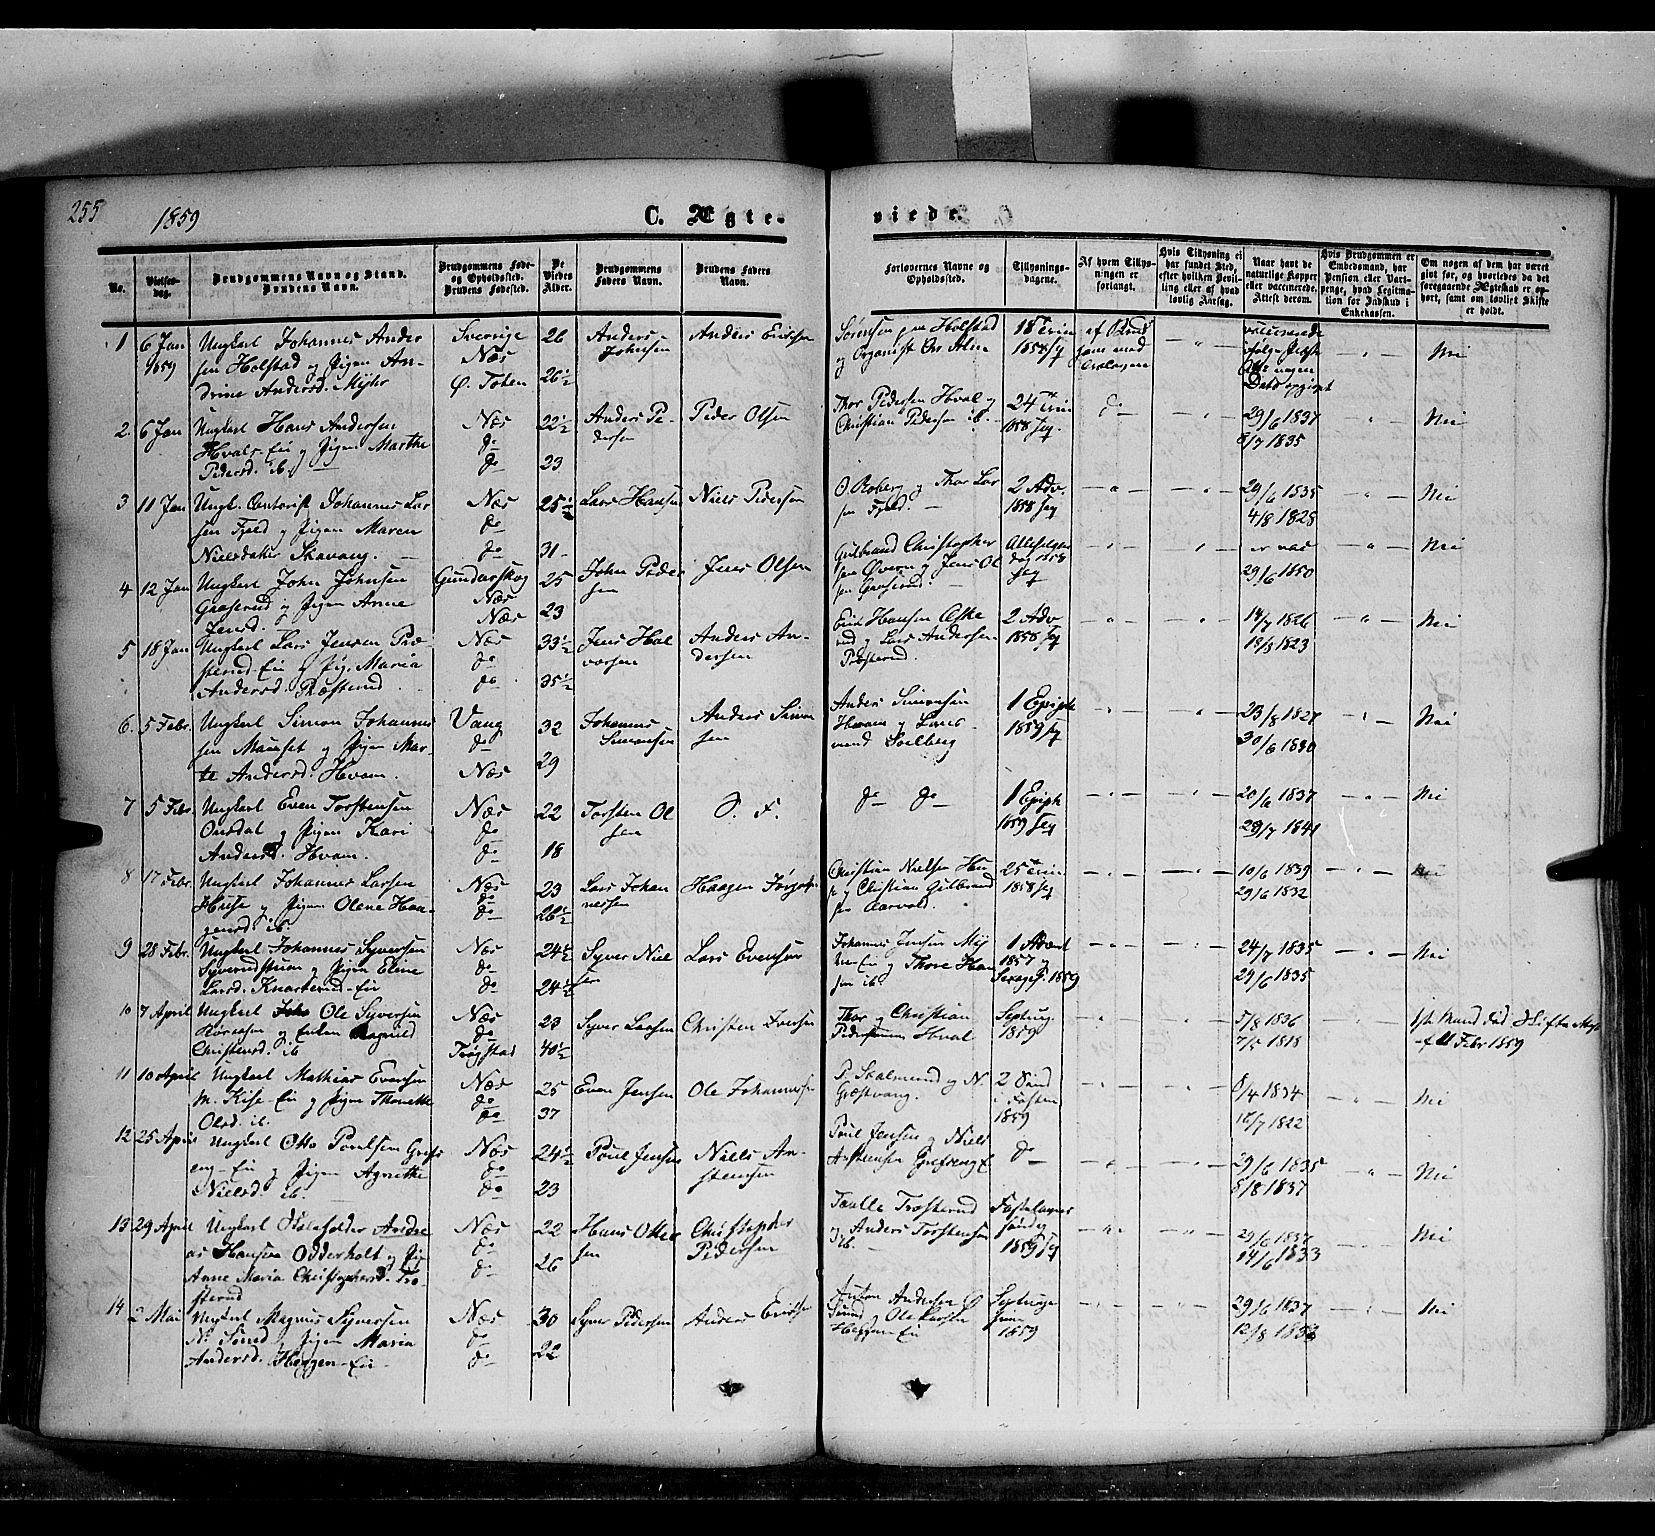 255
1859
C. Ægte-
viede.
No.
Vielses-
dag.
Brudgommens Navn og Stand.
Brudens Navn.
Brudgommens Føde-
og Opholdssted.
Brudens Fødested.
De
Viedes
Alder.
Brudgommens
Faders Navn.
Brudens Faders
Navn.
Forlovernes Navne og
Opholdssted.
Tillysnings-
dagene.
Af hvem Tillys-
ningen er
forlangt.
Hvis Tillysning ei
har fundet Sted,
efter hvilken Bevil-
ling eller af hvad
lovlig Aarsag.
Naar havt de
naturlige Kopper
eller vaccinerede.
Attest derom.
Hvis Brudgommen er
Embedsmand, har
Pension eller Vart-
penge, hvad Legitma-
tion for Indskud i
Enkekassen.
Om nogen af dem har været
givt før, og hvorledes da det
foregaaende Ægteskab er op-
hørt, samt om lovligt Skifte
er holdt.
1
6 Jan
1859
Ungkarl Johannes Ander
sen Holstad og Pigen An-
drine Andersd. Myhr
Sverige
Næs
Ø. Toten
26
26½
Anders
Johnsen
Anders Ericsen
Sørensen Holstad
og Organist Alm
18 Trin
1858
vaccinerede
Nei
2.
6 Jan
Ungkarl Hans Andersen
Hvals-Eie og Pigen Marthe
Pedersd. ib.
Næs
do
do
22½
23
Anders Pe-
dersen
Peder Olsen
Thor Pedersen Hval og
Christian Pedersen ib.
24 Trin
1858
do
29/6 1837
8/7 1835
Nei
3
11 Jan
Ungk. Cantorist Johannes Lar
sen Fjeld og Pigen Maren
Nielsdatter Skavang.
Næs
do
do
25½
31
Lars Hansen
Niels Pedersen
O Roberg og Thor Lar
sen Fjeld.
2 Adv.
1858
29/6 1835
4/8 1828
Nei
4
12 Jan
Ungkarl John Johnsen
Graserud og Pigen Anne
Jensd.
Gundarskog
Næs
Næs
25
23
John Peder
sen
Jens Olsen
Gulbrand Christopher
sen Øvern og Jens Ol
sen Graserud.
1858
29/6 1850
Nei
5
18 Jan
Ungkarl Lars Jensen Præ
sterud-Eie og Pig. Maria
Andersd. Præsterud
Næs
do
do
33½
35½
Jens Hal
vorsen
Anders An-
dersen
Erik Hansen Aske
rud og Lars Andersen
Præsterud.
2 Adv
1858
14/7 1826
18/8 1823
Nei
6.
5 Febr.
Ungkarl Simon Johannes
sen Mamset og Pigen Mar-
te Andersd. Hvam.
Vang
do
Næs
32
29
Johannes
Simensen
Anders Simen
sen
Anders Simensen
Hvam og
Solberg
1 Epiph
1859
23/8 1827
30/6 1830
Nei
7
5 Febr.
Ungkarl Even Torstensen
Onsdal og Pigen Kari
Andersd. Hvam.
Næs
do
do
22
18
Torsten Ol
sen
S. F.
do do
1 Epiph
1859
20/6 1837
29/7 1841
Nei
8
17 Febr.
Ungkarl Johannes Larsen
Huse og Pigen Olene Haa-
gensd. ib.
Næs
do
do
23
26½
Lars Johan
nessen
Haagen
Christian Nielsen Hu
se og Christian Gulbrand
sen Aarvold.
25 Trin
1858
10/6 1839
29/6 1832
Nei
9
28 Febr.
Ungkarl Johannes Syversen
Syverudstuen og Pigen Elene
Larsd. Knarterud-Eie
Næs
do
do
24½
24½
Syver Niel
sen
Lars Evensen
Johannes Jensen My
hr-Eie og Thore Han
sen ib.
1 Advent
1857 og
Sexages. 1859
24/7 1835
29/6 1835
Nei
10
7 April
Ungkarl Ole Syversen
og Enken Ragnild
Christensd. ib
Næs
do
Trøgstad
23
40½
Syver Larsen
Christen Iversen
Thor og Christian
Pedersønner Hval
Septuag.
1859
5/8 1836
7/5 1818
1st Mand død Skifte
11 Febr 1859
11
10 April
Ungkarl Mathias Evensen
M. Kise-Eie og Pigen Thonette
Olsd. ib.
Næs
do
do
25
37
Even Jensen
Ole Johannesen
P. Skalmerud og N.
Græstvang.
2 Sønd
i Fasten
1859
8/4 1834
12/7 1822
Nei
12
25 April
Ungkarl Otto Poulsen Grefs
eng-Eie og Pigen Agnethe
Nielsd. ib.
Næs
do
do
24½
23
Poul Jensen
Niels An-
stensen
Poul Jensen og Niels
Anstensen Grefseng E
do
29/6 1835
5/8 1837
Nei
13
29 April
Ungkarl Andre
as Hansen Odderholt og Pig
Anne Maria Christophersd. Tro-
sterud
Næs
do
do
22
26
Hans Otter
sen
Christopher
Pedersen
Taalle Trosterud
og Anders Torstensen
ib.
Fastelavns
søndag
1859
29/6 1837
14/6 1833
Nei
14
2 Mai
Ungkarl Magnus Syversen
N. Sund og Pigen Maria
Andersd. Heggen-Eie
Næs
do
do
30
22
Syver Pedersen
Anders Ericsen
Anton Andersen Ø
Sund og Ole Larsen
Heggen-Eie
Septuage
sima
1859
29/6 1837
12/8 1836
Nei